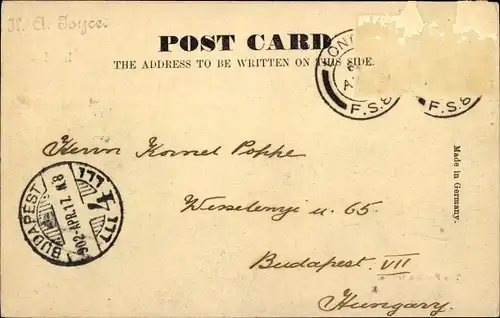 H. A. Joyce.
POST CARD
THE ADDRESS TO BE WRITTEN ON THIS SIDE.
LON
F.S.6
F.S.6
Herrn Kornel Poppe
Wesselenyi u. 65.
Budapest. VII
Hungary.
BUDAPEST
902-APR.17. N8
Made in Germany.